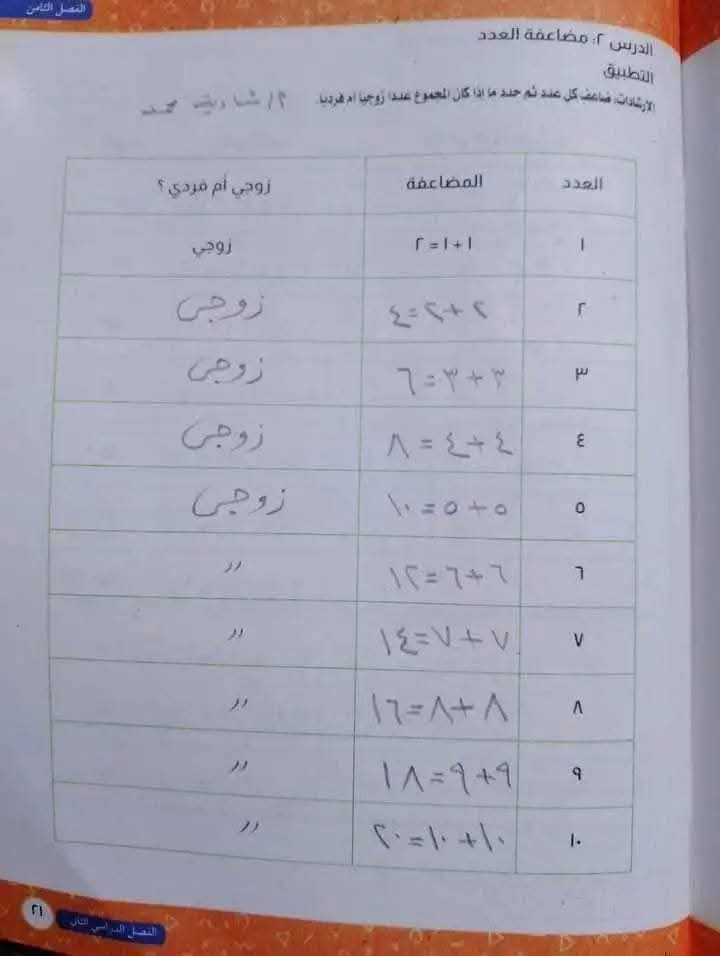 الفصل الثامن
الدرس ٢: مضاعفة العدد
التطبيق
الارشادات: ضاعف كل عدد ثم حدد ما إذا كان المجموع عددا زوجيا أم فرديا.
م/ شاديه محمد
العدد المضاعفة زوجي أم فردي؟
١ ١ + ١ = ٢ زوجي
٢ ٢+٢=٤ زوجى
٣ ٣+٣=٦ زوجى
٤ ٤+٤=٨ زوجى
٥ ٥+٥=١٠ زوجى
٦ ٦+٦=١٢ 〃
٧ ٧+٧=١٤ 〃
٨ ٨+٨=١٦ 〃
٩ ٩+٩=١٨ 〃
١٠ ١٠+١٠=٢٠ 〃
الفصل الدراسي الثاني ٢١